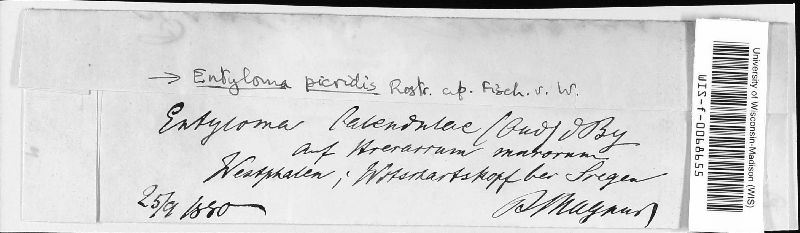 → Entyloma picridis Rostr. ap. Fisch. v. W.
Entyloma Calendulae (Oud) d By
auf Hieracium murorum
Westphalen; bei Siegen
25/9 1880 P Magnus
University of Wisconsin-Madison (WIS)
WIS-f-0068655